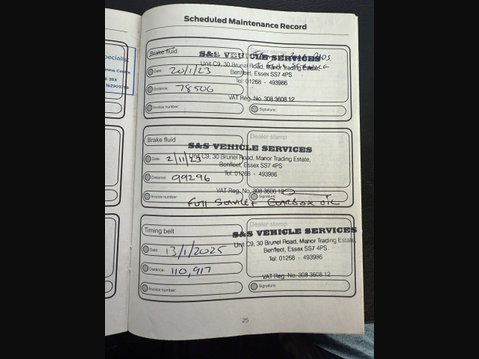 Scheduled Maintenance Record
Specialist
Brake fluid
S&S VEHICLE SERVICES
Unit C9, 30 Brunel Road, Manor Trading Estate,
Date: 20/1/23
Benfleet, Essex SS7 4PS
Distance: 78506
Tel: 01268 - 493986
VAT Reg. No. 308 3608 12
Invoice number:
Signature:
Brake fluid
Dealer stamp
S&S VEHICLE SERVICES
Unit C9, 30 Brunel Road, Manor Trading Estate,
Date: 2/11/23
Benfleet, Essex SS7 4PS
Distance: 99296
Tel: 01268 - 493986
VAT Reg. No. 308 3608 12
Invoice number:
FULL SERVICE + GEARBOX OIL
Timing belt
Dealer stamp
S&S VEHICLE SERVICES
Unit C9, 30 Brunel Road, Manor Trading Estate,
Date: 13/1/2025
Benfleet, Essex SS7 4PS
Tel: 01268 - 493986
Distance: 110,917
VAT Reg. No. 308 3608 12
Invoice number:
Signature:
25